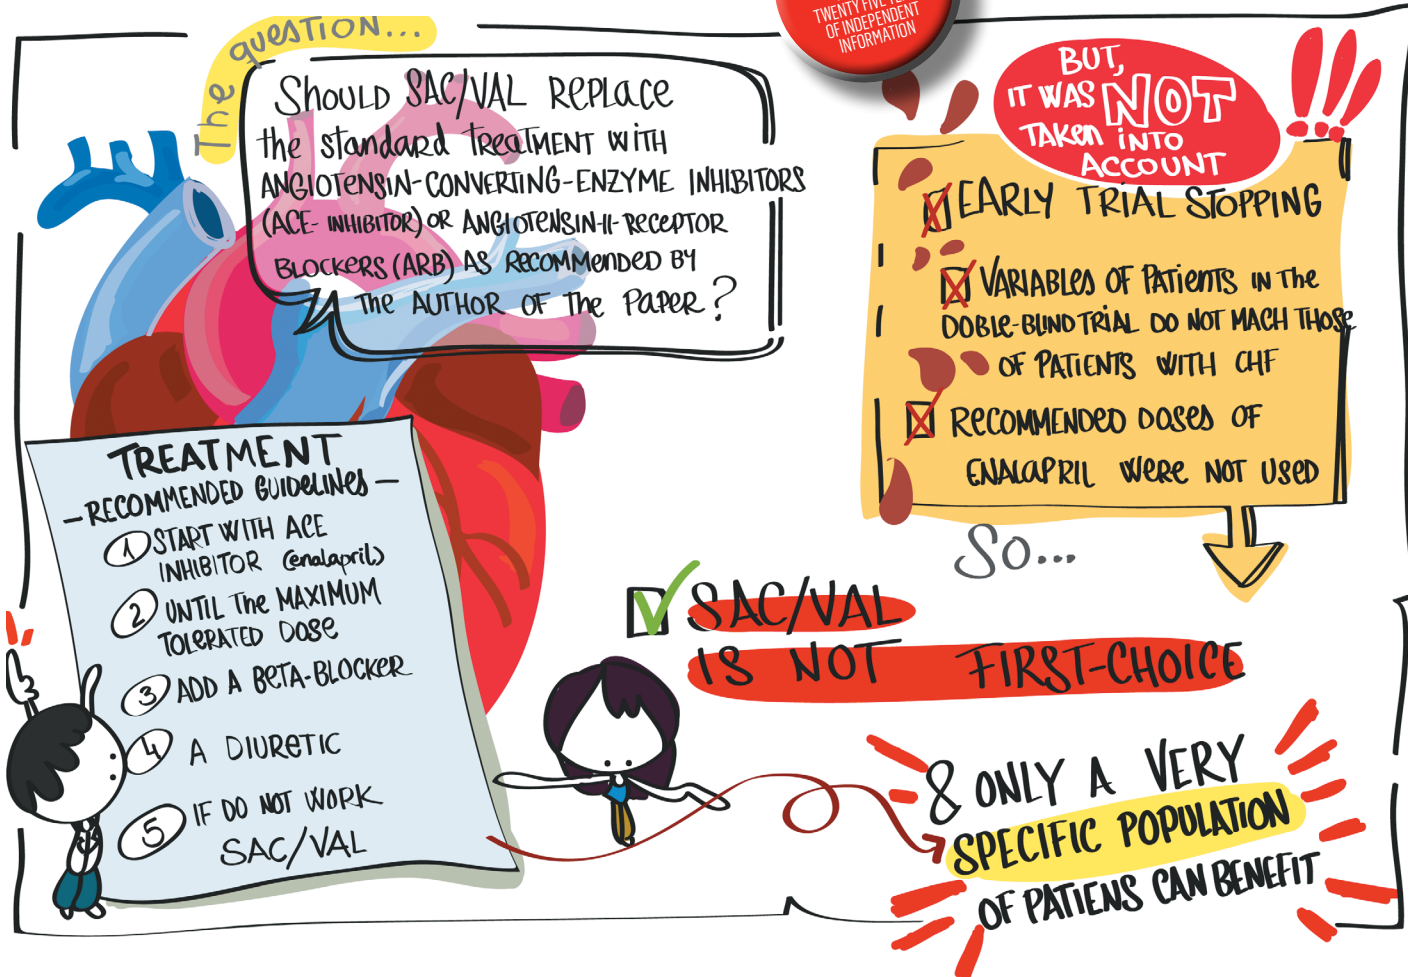 The question...
Should SAC/VAL REPLACE
the standard treatment with
ANGIOTENSIN-CONVERTING-ENZYME INHIBITORS
(ACE- INHIBITOR) OR ANGIOTENSIN-II-RECEPTOR
BLOCKERS (ARB) AS RECOMMENDED BY
the AUTHOR OF the PAPER?
TWENTY FIVE
OF INDEPENDENT
INFORMATION
BUT,
IT WAS NOT
TAKEN INTO
ACCOUNT
EARLY TRIAL STOPPING
VARIABLES OF PATIENTS IN The
DOBLE-BLIND TRIAL DO NOT MACH THOSE
OF PATIENTS WITH CHF
RECOMMENDED DOSES OF
ENALAPRIL WERE NOT USED
So...
SAC/VAL
IS NOT FIRST-CHOICE
& ONLY A VERY
SPECIFIC POPULATION
OF PATIENS CAN BENEFIT
TREATMENT
- RECOMMENDED GUIDELINES -
1 START WITH ACE
INHIBITOR (enalapril)
2 UNTIL The MAXIMUM
TOLERATED DOSE
3 ADD A BETA-BLOCKER
4 A DIURETIC
5 IF DO NOT WORK
SAC/VAL